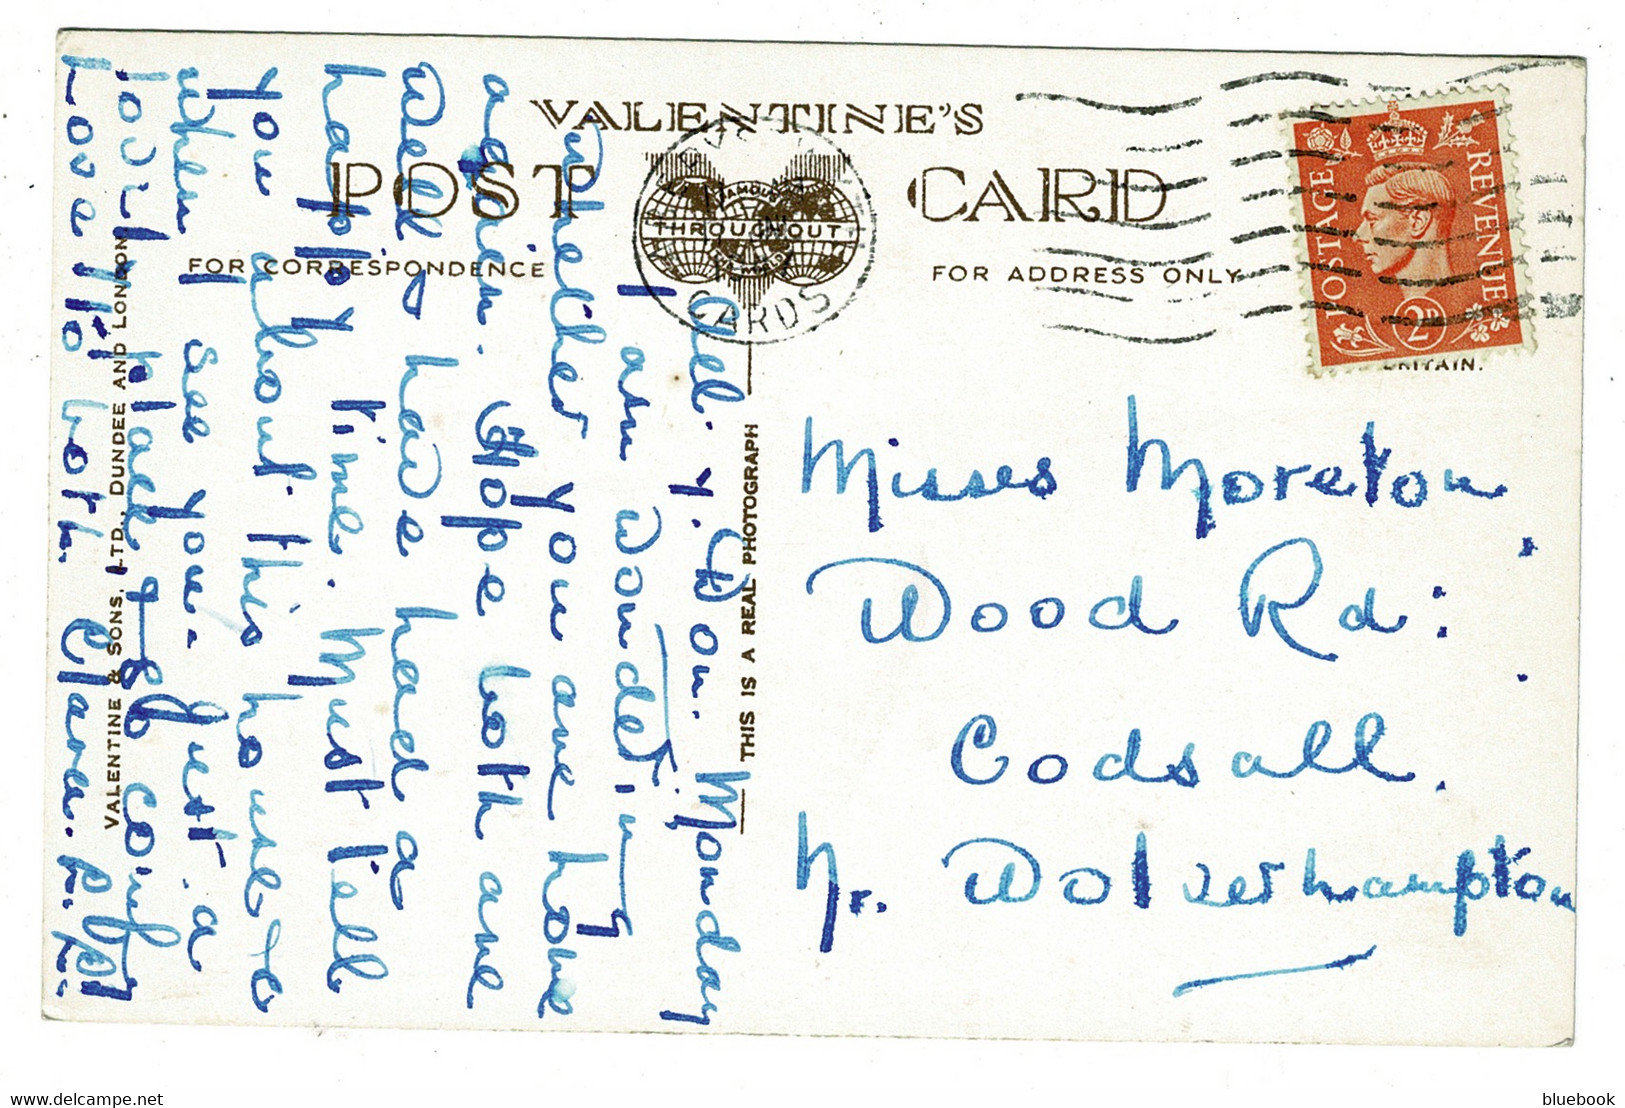 VALENTINE'S
POST CARD
FAMOUS
THROUGHOUT
THE WORLD
CARDS
FOR CORRESPONDENCE
FOR ADDRESS ONLY
POSTAGE REVENUE
2D
BRITAIN.
THIS IS A REAL PHOTOGRAPH
VALENTINE & SONS, LTD., DUNDEE AND LONDON
Monday
I am wondering
whether you are home
again. Hope both are
well & have had a
happy time. Must tell
you about this house
when I see you. Just a
place
Love to both. Clara.
Misses Moreton
Wood Rd:
Codsall.
Nr. Wolverhampton
bluebook